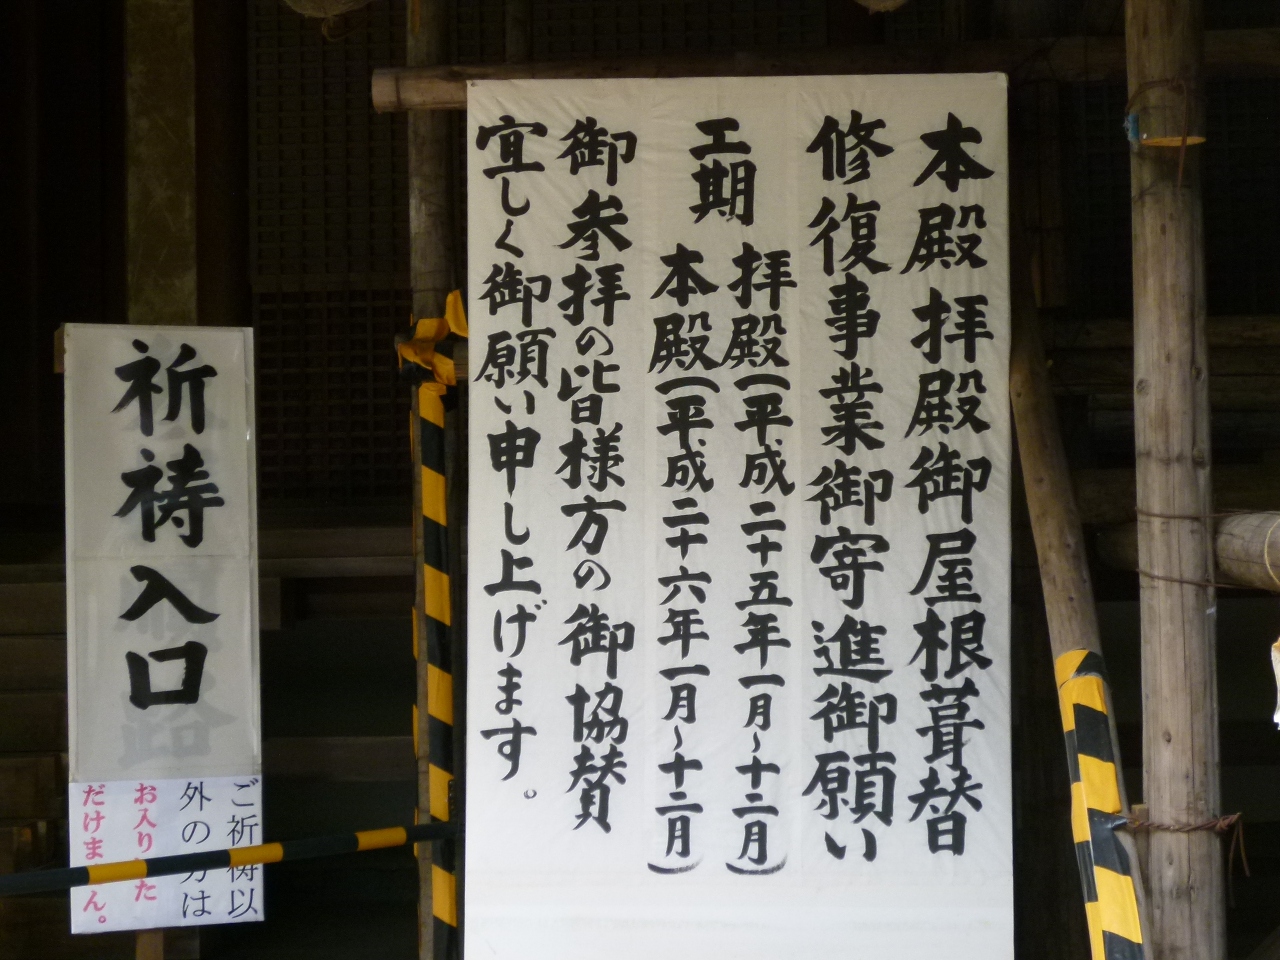 本殿拝殿御屋根葺替
修復事業御寄進御願い
工期
拝殿(平成二十五年一月~十二月)
本殿(平成二十六年一月~十二月)
御参拝の皆様方の御協賛
宜しく御願い申し上げます。
祈祷入口
ご祈祷以
外の方は
お入りた
だけません。